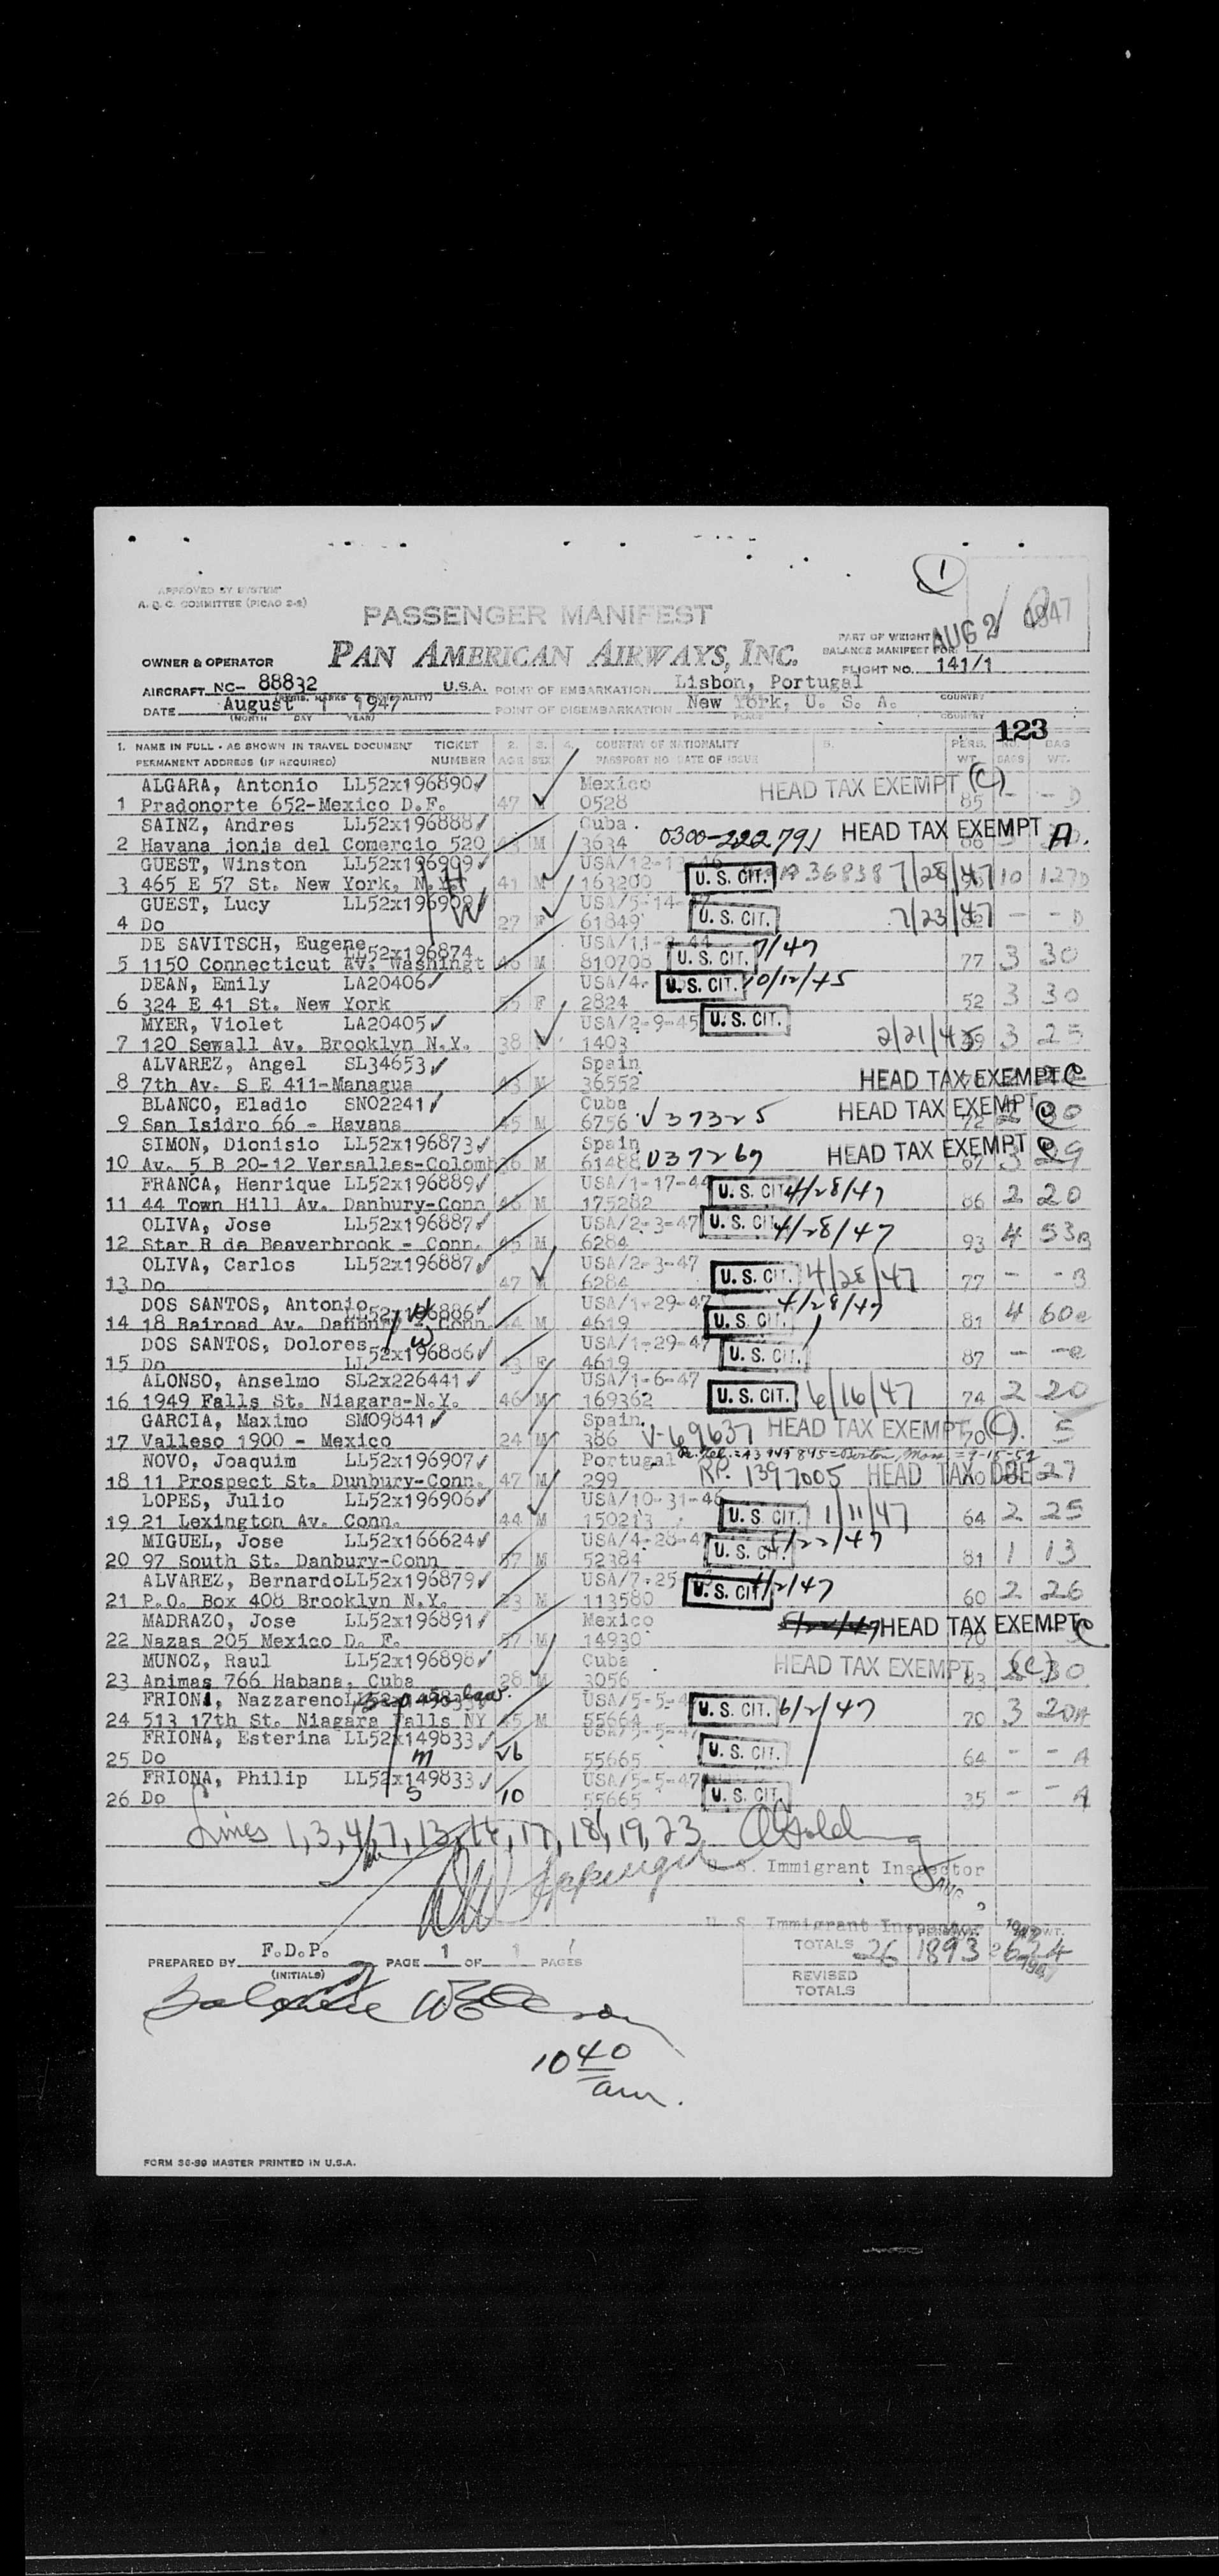 1
APPROVED BY SYSTEM
A. O. C. COMMITTEE (PICAO 2-2)
PASSENGER MANIFEST
AUG 2 1947
PART OF WEIGHT
BALANCE MANIFEST FOR
OWNER & OPERATOR PAN AMERICAN AIRWAYS, INC. FLIGHT NO. 141/1
AIRCRAFT NC- 88832 U.S.A. POINT OF EMBARKATION Lisbon, Portugal
DATE August 1 1947 POINT OF DISEMBARKATION New York, U. S. A.
(MONTH DAY YEAR) PLACE COUNTRY
123
1. NAME IN FULL - AS SHOWN IN TRAVEL DOCUMENT TICKET 2. 3. 4. COUNTRY OF NATIONALITY 5. PERS. NO. BAG
PERMANENT ADDRESS (IF REQUIRED) NUMBER AGE SEX PASSPORT NO DATE OF ISSUE WT. BAGS WT.
ALGARA, Antonio LL52x196890 Mexico HEAD TAX EXEMPT (C)
1 Pradonorte 652-Mexico D.F. 47 M 0528 85 - - D
SAINZ, Andres LL52x196888 Cuba 0300-222791 HEAD TAX EXEMPT A.
2 Havana jonja del Comercio 520 M 3634
GUEST, Winston LL52x196909 USA/12-1
3 465 E 57 St. New York, N.Y. 41 M 163200 U. S. CIT. 7/28/47 10 127D
GUEST, Lucy USA/5-14-
4 Do 27 F 61849 U. S. CIT. 7/23/47 - - D
DE SAVITSCH, Eugene LL52x196874 USA/11-
5 1150 Connecticut Av. Washingt M 810708 U. S. CIT. 7/47 77 3 30
DEAN, Emily LA20406 USA/4- U. S. CIT. 10/12/45
6 324 E 41 St. New York F 2824 52 3 30
MYER, Violet LA20405 USA/2-9-45 U. S. CIT.
7 120 Sewall Av. Brooklyn N.Y. 38 1403 2/21/45 3 25
ALVAREZ, Angel SL34653 Spain
8 7th Av. S E 411-Managua M 36552 HEAD TAX EXEMPT C
BLANCO, Eladio SN02241 Cuba HEAD TAX EXEMPT C
9 San Isidro 66 - Havana 45 M 6756 V37325 72
SIMON, Dionisio LL52x196873 Spain HEAD TAX EXEMPT C
10 Av. 5 B 20-12 Versalles-Colomb M 61488 V37269 67 3 29
FRANCA, Henrique LL52x196889 USA/1-17-44 U. S. CIT. 4/28/47
11 44 Town Hill Av. Danbury-Conn M 175282 86 2 20
OLIVA, Jose LL52x196887 USA/2-3-47 U. S. CIT. 4/28/47
12 Star R de Beaverbrook - Conn. 45 M 6284 93 4 53B
OLIVA, Carlos LL52x196887 USA/2-3-47
13 Do 47 M 6284 U. S. CIT. 4/28/47 77 - - B
DOS SANTOS, Antonio LL52x196886 USA/1-29-47 4/28/47
14 18 Rairoad Av. Danbury Conn. 44 M 4619 U. S. CIT. 81 4 60e
DOS SANTOS, Dolores USA/1-29-47
15 Do LL52x196886 F 4619 U. S. CIT. 87 - -e
ALONSO, Anselmo SL2x226441 USA/1-6-47
16 1949 Falls St. Niagara-N.Y. 46 M 169362 U. S. CIT. 6/16/47 74 2 20
GARCIA, Maximo SM09841 Spain V-69637 HEAD TAX EXEMPT (C). 5
17 Valleso 1900 - Mexico 24 M 386
NOVO, Joaquim LL52x196907 Portugal
18 11 Prospect St. Dunbury-Conn. 47 M 299 R.P. 1397005 HEAD TAX DUE 27
LOPES, Julio LL52x196906 USA/10-31-46
19 21 Lexington Av. Conn. 44 M 150213 U. S. CIT. 1/11/47 64 2 25
MIGUEL, Jose LL52x166624 USA/4-28-4
20 97 South St. Danbury-Conn M 52384 U. S. CIT. 81 1 13
ALVAREZ, Bernardo LL52x196879 USA/7-25
21 P.O. Box 408 Brooklyn N.Y. M 113580 U. S. CIT. 60 2 26
MADRAZO, Jose LL52x196891 Mexico HEAD TAX EXEMPT C
22 Nazas 205 Mexico D. F. M 14930
MUNOZ, Raul LL52x196898 Cuba HEAD TAX EXEMPT (C)
23 Animas 766 Habana, Cuba 28 M 3056 30
FRIONA, Nazzareno USA/5-5-4
24 513 17th St. Niagara Falls NY 45 M 55664 U. S. CIT. 6/2/47 70 3 20A
FRIONA, Esterina LL52x149833 USA/5-5-47
25 Do 55665 U. S. CIT. 64 - - A
FRIONA, Philip LL52x149833 USA/5-5-47
26 Do 10 55665 U. S. CIT. 35 - - A
Lines 1, 3, 4, 7, 13, 16, 17, 18, 19, 23
U. S. Immigrant Inspector
U. S. Immigrant Inspector
F.D.P. TOTALS 26 1893
PREPARED BY PAGE 1 OF 1 PAGES
(INITIALS)
REVISED
TOTALS
10 40
am.
FORM 36-80 MASTER PRINTED IN U.S.A.